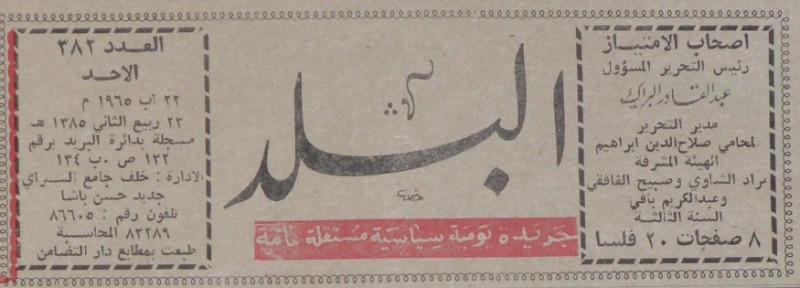 اصحاب الامتياز
رئيس التحرير المسؤول
عبدالقادر البراك
مدير التحرير
المحامي صلاح الدين ابراهيم
الهيئة المشرفة
مراد الشاوي وصبيح الغافقي
وعبدالكريم يافي
السنة الثالثة
٨ صفحات ٢٠ فلسا
البلد
جريدة يومية سياسية مستقلة عامة
العدد ٣٨٢
الاحد
٢٢ آب ١٩٦٥ م
٢٣ ربيع الثاني ١٣٨٥ هـ
مسجلة بدائرة البريد برقم
١٣٢ ص.ب ١٣٤
الادارة : خلف جامع السراي
جديد حسن باشا
تلفون رقم : ٨٦٦٠٥
٨٢٢٨٩ المحاسبة
طبعت بمطابع دار التضامن